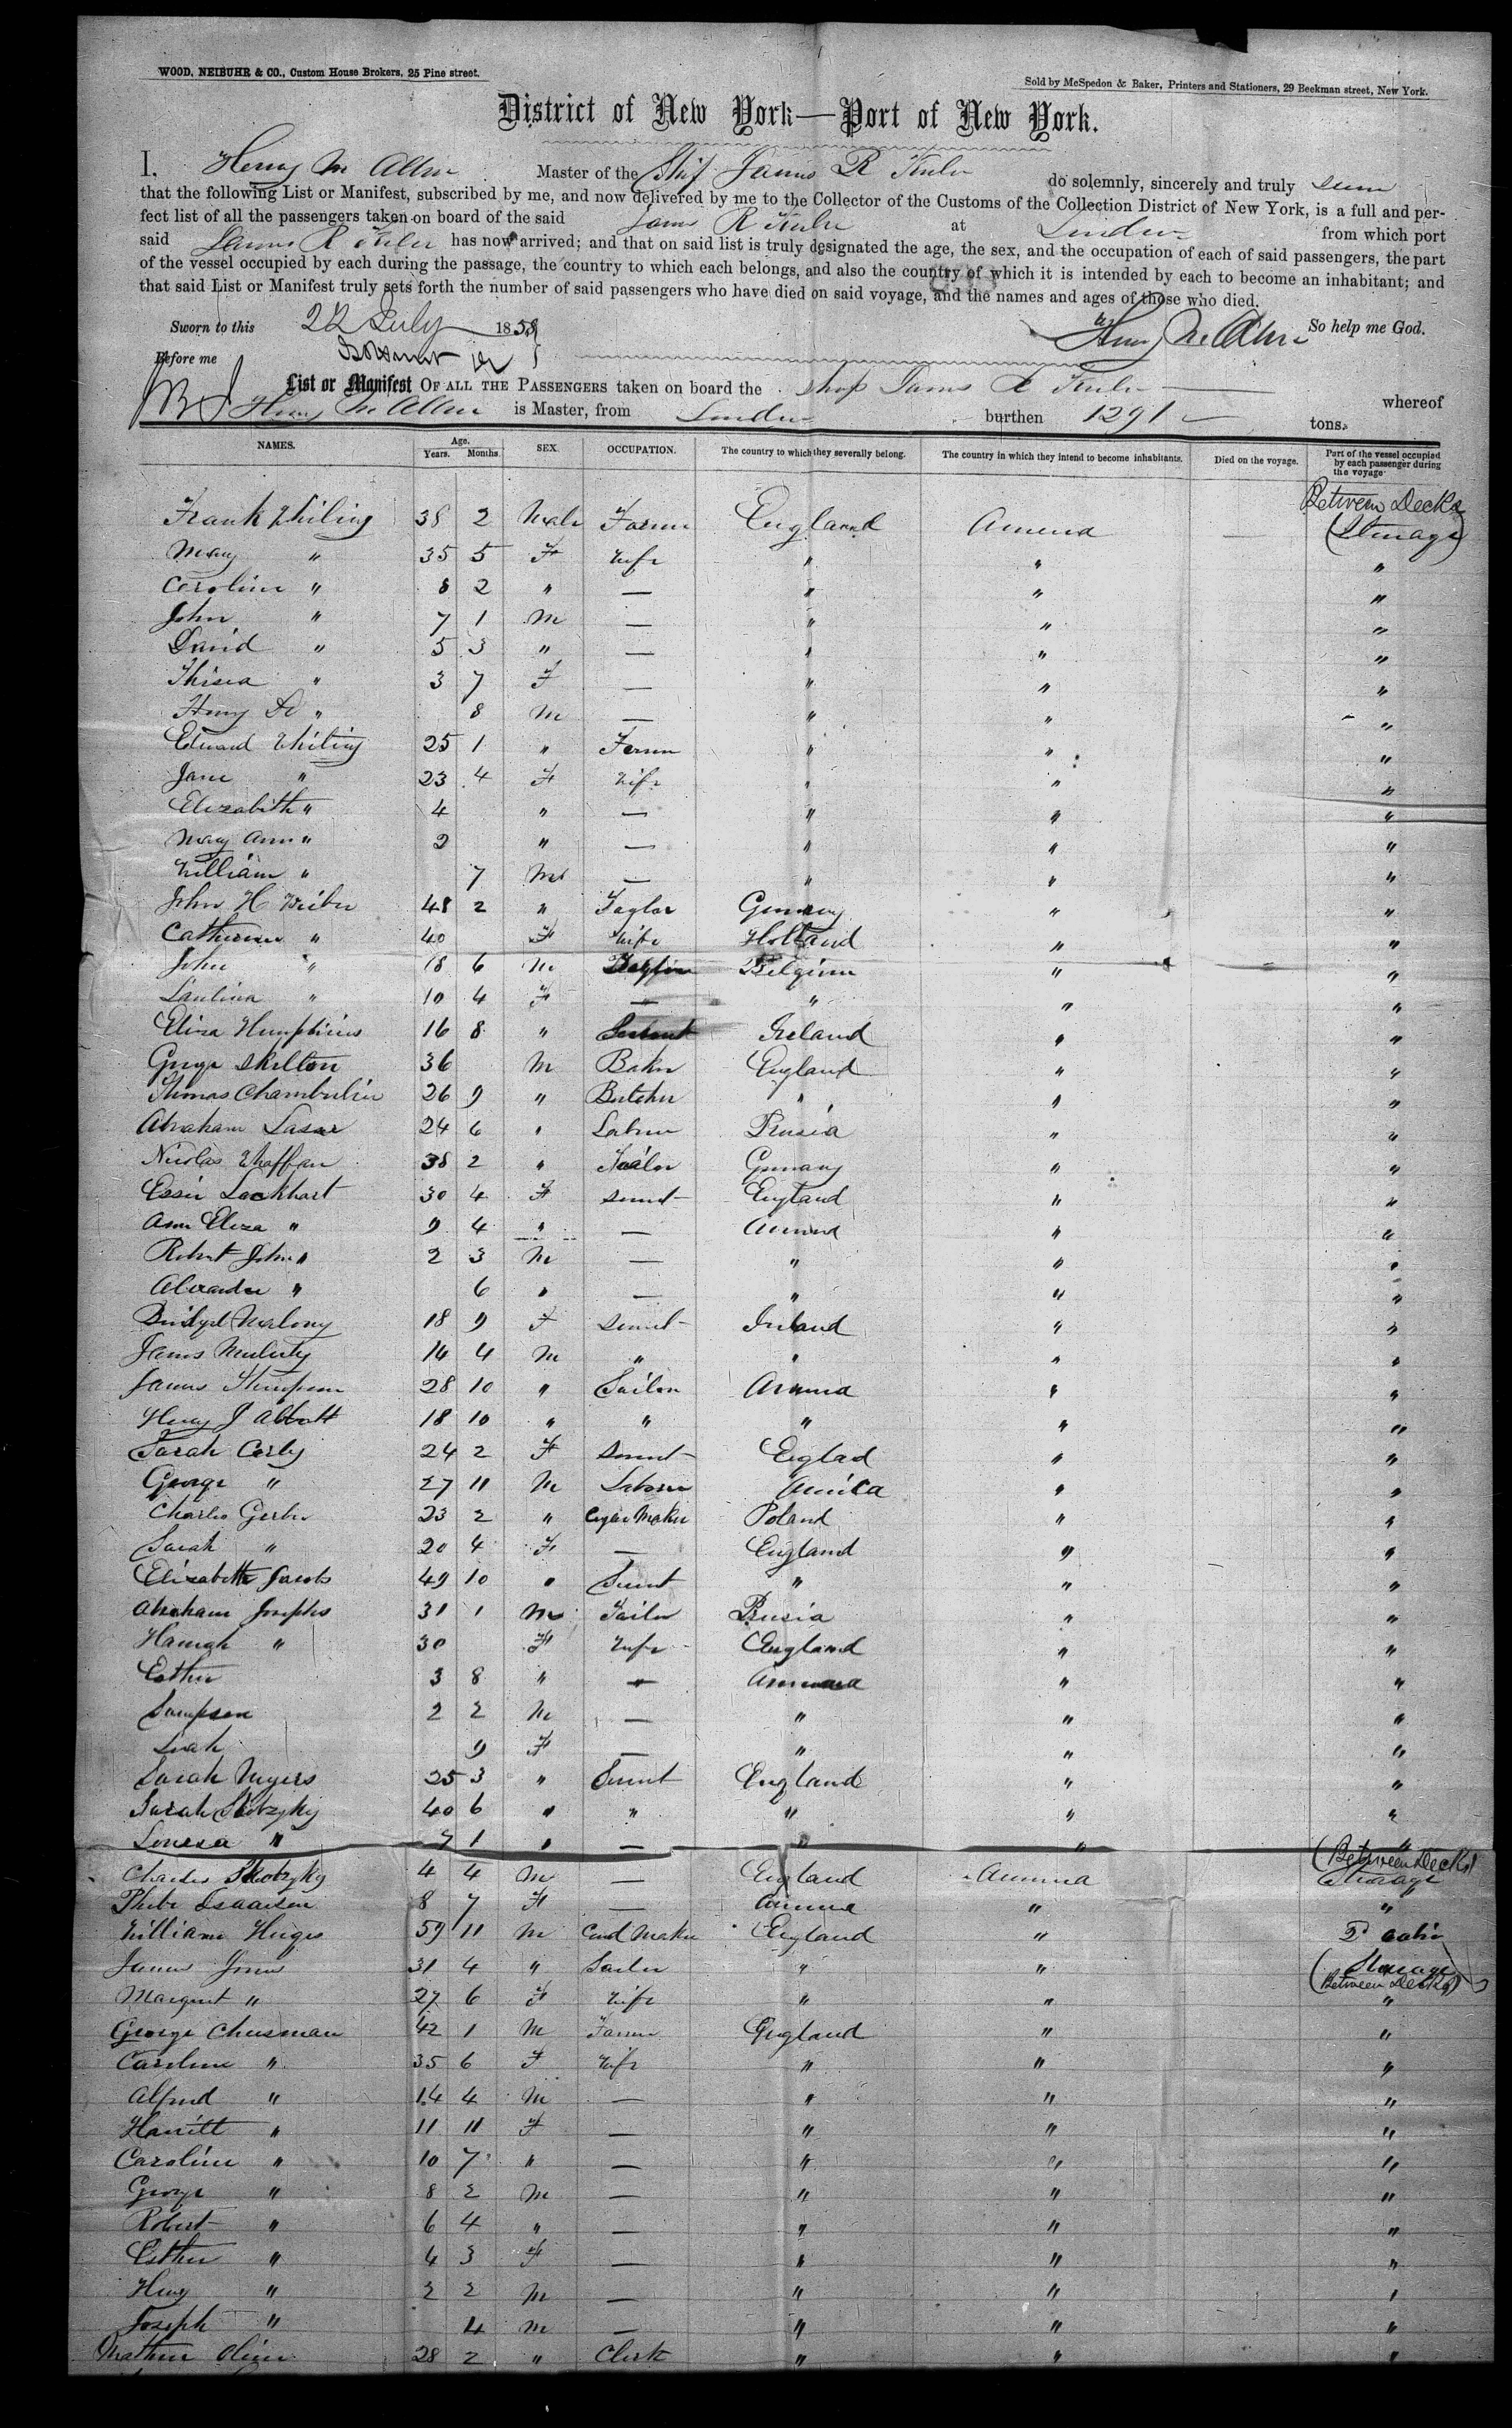 WOOD, NEIBUHR & CO., Custom House Brokers, 25 Pine street.
Sold by McSpedon & Baker, Printers and Stationers, 29 Beekman street, New York.
District of New York—Port of New York.
I, Henry M Allen Master of the Ship James R do solemnly, sincerely and truly
that the following List or Manifest, subscribed by me, and now delivered by me to the Collector of the Customs of the Collection District of New York, is a full and per-
fect list of all the passengers taken on board of the said James R at London from which port
said James R has now arrived; and that on said list is truly designated the age, the sex, and the occupation of each of said passengers, the part
of the vessel occupied by each during the passage, the country to which each belongs, and also the country of which it is intended by each to become an inhabitant; and
that said List or Manifest truly sets forth the number of said passengers who have died on said voyage, and the names and ages of those who died.
Sworn to this 22 July 1858 So help me God.
Before me
List or Manifest OF ALL THE PASSENGERS taken on board the Ship James R whereof
Henry M Allen is Master, from London burthen 1291 tons.
NAMES. Age. Years. Months. SEX. OCCUPATION. The country to which they severally belong. The country in which they intend to become inhabitants. Died on the voyage. Part of the vessel occupied by each passenger during the voyage
Between Decks
Frank Whiting 38 2 Male Farmer England America — (Steerage)
Mary " 35 5 F Wife " " "
Caroline " 8 2 " — " " "
John " 7 1 M — " " "
David " 5 3 " — " " "
" 3 7 F — " " "
Henry " 8 M — " " "
Edward Whiting 25 1 " Farmer " " "
Jane " 23 4 F Wife " " "
Elizabeth " 4 " — " " "
Mary Ann " 2 " — " " "
William " 7 M — " " "
John H 48 2 " Taylor Germany " "
Catherine " 40 F Wife Holland " "
John " 18 6 M Belgium " "
" 10 4 F — " " "
Eliza Humphries 16 8 " Servant Ireland " "
George Skelton 36 M Baker England " "
Thomas Chamberlin 26 9 " Butcher " " "
Abraham Lasar 24 6 " Labour Prusia " "
Nicolas 38 2 " Tailor Germany " "
Essie Lockhart 30 4 F Servnt England " "
Ann Eliza " 9 4 " — America " "
Robert John " 2 3 M — " " "
Alexander " 6 " — " " "
Bridget Malony 18 9 F Servnt Ireland " "
James 14 4 M " " " "
James Thompson 28 10 " Sailor America " "
Henry J Abbott 18 10 " " " " "
Sarah Corby 24 2 F Servnt Englad " "
George " 27 11 M Laborer America " "
Charles 23 2 " Cigar Maker Poland " "
Sarah " 20 4 F — England " "
Elizabeth Jacobs 49 10 " Servnt " " "
Abraham Josephs 31 1 M Tailor Prusia " "
Hannah " 30 F Wife England " "
Esther 3 8 " — America " "
Sampson 2 2 M — " " "
Leah 9 F — " " "
Sarah Myers 25 3 " Servnt England " "
Sarah 40 6 " " " " "
" 7 1 " — " " "
(Between Decks)
Charles 4 4 M — England America Steerage
Phebe Isaacson 8 7 F — America " "
William Huges 59 11 M Maker England " 2 Cabin
James Jones 31 4 " Sailor " " (Steerage
Between Decks)
Margaret " 27 6 F Wife " " "
George Chusman 42 1 M Farmer England " "
Caroline " 35 6 F Wife " " "
Alfred " 14 4 M — " " "
Harriett " 11 11 F — " " "
Caroline " 10 7 " — " " "
George " 8 2 M — " " "
Robert " 6 4 " — " " "
Esther " 4 3 F — " " "
Henry " 2 2 M — " " "
Joseph " 4 M — " " "
Mathew 28 2 " Clerk " " "